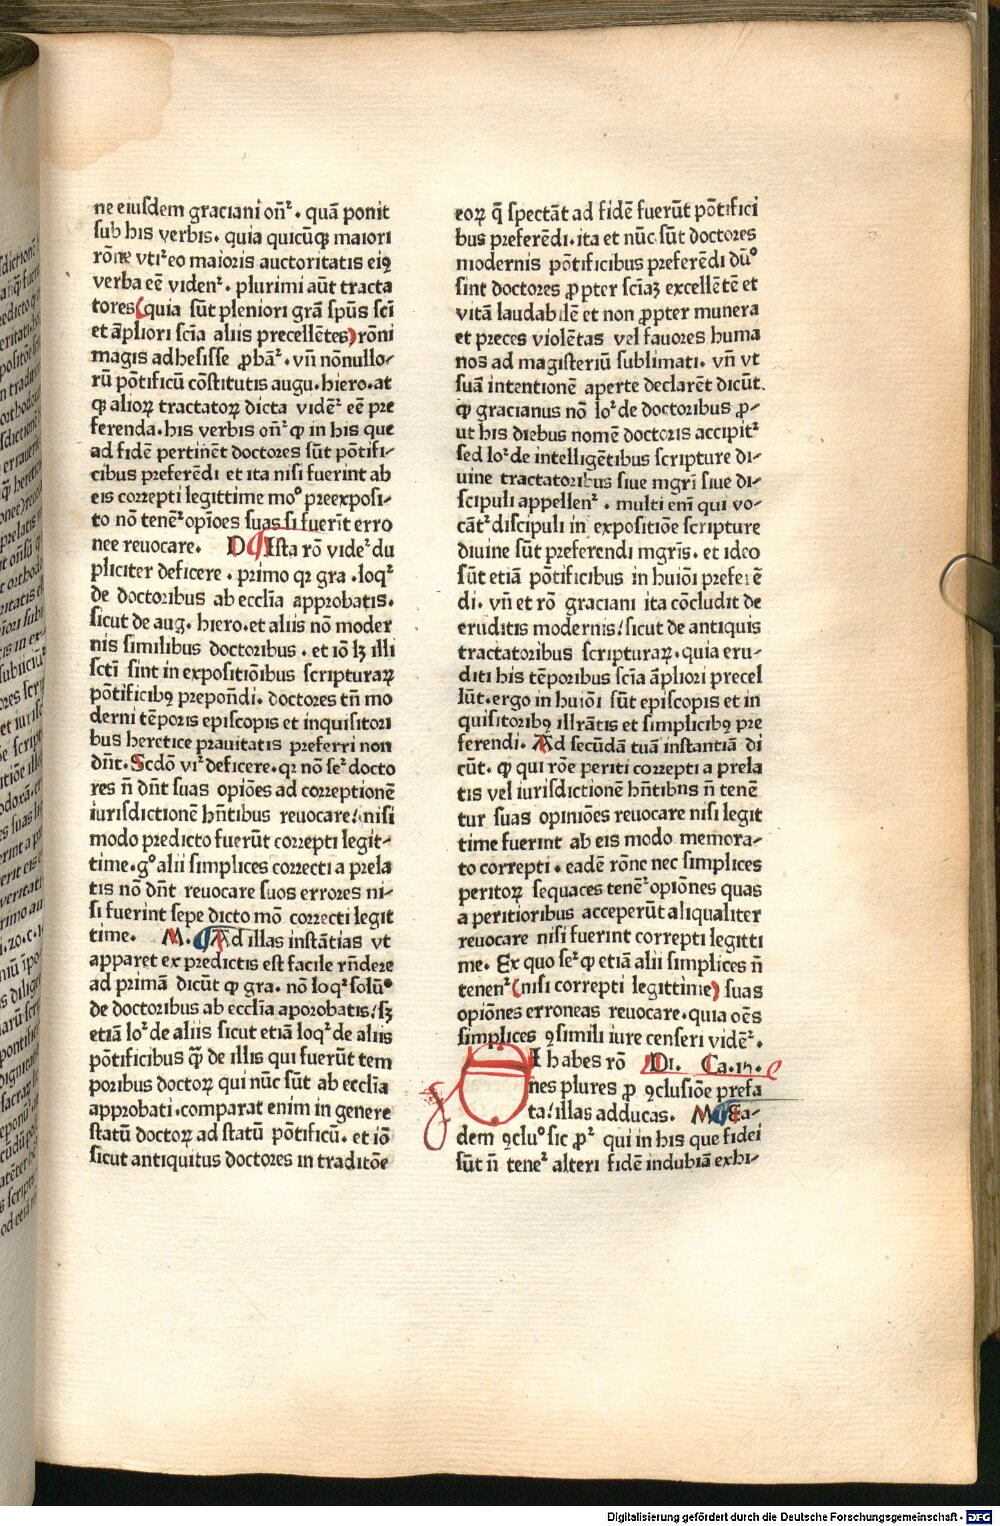 ne eiusdem graciani oñꝛ. quā ponit
sub his verbis. quia quicūqꝫ maiori
rōne vtiꝛ eo maioris auctoritatis eiꝯ
verba eē videnꝛ. plurimi aūt tracta
tores(quia sūt pleniori grā spūs sci̅
et āpliori scīa aliis precellētes)rōni
magis adhesisse ꝓbāꝛ. vñ nōnullo⸗
rū pōtificū cōstitutis augu. hiero. at
qꝫ alioꝝ tractatoꝝ dicta vidēꝛ eē pre
ferenda. his verbis oñꝛ ꝙ in his que
ad fidē pertinēt doctores sūt pōtifi⸗
cibus preferēdi et ita nisi fuerint ab
eis correpti legittime moº preexposi⸗
to nō tenēꝛ opīoes suas si fuerīt erro
nee reuocare. D Ista rō videꝛ du
pliciter deficere. primo qꝛ gra. loqꝛ
de doctoribus ab ecclīa approbatis.
sicut de aug. hiero. et aliis nō moder
nis similibus doctoribus. et iō lꝫ illi
scti̅ sint in expositiōibus scripturaꝝ
pōtificibꝯ prepoñdi. doctores tñ mo
derni tēporis episcopis et inquisitori
bus heretice prauitatis preferri non
dñt. Scdō viꝛ deficere. qꝛ nō seꝛ docto
res ñ dñt suas opiōes ad correptionē
iurisdictionē hñtibus reuocare/ nisi
modo predicto fuerūt correpti legit⸗
time. gº alii simplices correcti a prela
tis nō dñt reuocare suos errores ni⸗
si fuerint sepe dicto mō correcti legit
time. M. Ad illas instātias vt
apparet ex predictis est facile rñdere
ad primā dicūt ꝙ gra. nō loqꝛ solūº
de doctoribus ab ecclīa aporobatis/ sꝫ
etiā loꝛ de aliis sicut etiā loqꝛ de aliis
pōtificibus qꝫ̄ de illis qui fuerūt tem
poribus doctoꝝ qui nūc sūt ab ecclīa
approbati. comparat enim in genere
statū doctoꝝ ad statū pōtificū. et iō
sicut antiquitus doctores in traditōe
eoꝝ q̄ spectāt ad fidē fuerūt pōtifici
bus preferēdi. ita et nūc sūt doctores
modernis pōtificibus preferēdi dūº
sint doctores ꝓpter scīaꝫ excellētē et
vitā laudabilē et non ꝓpter munera
et preces violētas vel fauores huma
nos ad magisteriū sublimati. vñ vt
suā intentionē aperte declarēt dicūt.
ꝙ gracianus nō loꝛ de doctoribus ꝓ⸗
ut his diebus nomē doctoris accipitꝛ
sed loꝛ de intelligētibus scripture di⸗
uine tractatoribus siue mgrī siue di⸗
scipuli appellenꝛ. multi enī qui vo⸗
cātꝛ discipuli in expositiōe scripture
diuine sūt preferendi mgrīs. et ideo
sūt etiā pōtificibus in huiōi prefer ē
di. vñ et rō graciani ita cōcludit de
eruditis modernis/ sicut de antiquis
tractatoribus scripturaꝝ. quia eru⸗
diti his tēporibus scīa āpliori precel
lūt. ergo in huiōi sūt episcopis et in
quisitoribꝯ illrātis et simplicibꝯ pre
ferendi. Ad secūdā tuā instantiā di
cūt. ꝙ qui rōe periti correpti a prela
tis vel iurisdictionē hñtibns ñ tenē
tur suas opiniōes reuocare nisi legit
time fuerint ab eis modo memora⸗
to correpti. eadē rōnc nec simplices
peritoꝝ sequaces tenēꝛ opiōnes quas
a peritioribus acceperūt aliqualiter
reuocare nisi fuerint correpti legitti
me. Ex quo seꝛ ꝙ etiā alii simplices ñ
tenenꝛ(nisi correpti legittime) suas
opiōnes erroneas reuocare. quia oēs
simplices ꝯsimili iure censeri vidēꝛ.
I habes rō DI. Ca. in.
nes plures ꝓ ꝯclusiōe prefa
ta/ illas adducas. M Ea⸗
dem ꝯcluº sic ꝓꝛ qui in his que fidei
sūt ñ teneꝛ alteri fidē indubiā exhi⸗
Digitalisierung gefördert durch die Deutsche Forschungsgemeinschaft - DFG